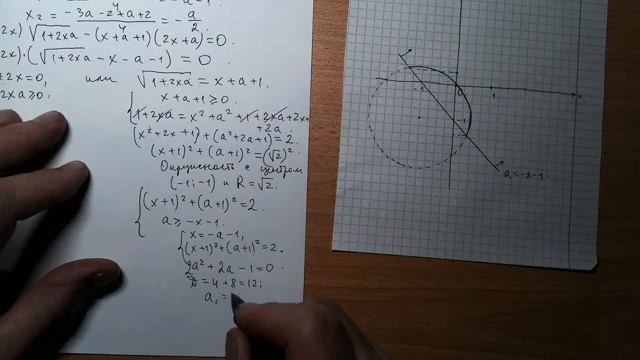 x₂ = (-3a - 2 + a + 2)/4 = -a/2
√(1+2xa) - (x+a+1)(2x+a) = 0.
2x)·(√(1+2xa) - x - a - 1) = 0
+2x = 0, или √(1+2xa) = x + a + 1.
2xa ≥ 0. x + a + 1 ≥ 0.
1 + 2xa = x² + a² + 1 + 2xa + 2x + 2a.
(x² + 2x + 1) + (a² + 2a + 1) = 2.
(x+1)² + (a+1)² = (√2)²
Окружность с центром
(-1; -1) и R = √2.
(x+1)² + (a+1)² = 2.
a ≥ -x - 1.
x = -a - 1,
(x+1)² + (a+1)² = 2.
2a² + 2a - 1 = 0.
D = 4 + 8 = 12;
a₁ =
0
1
a = -x - 1.